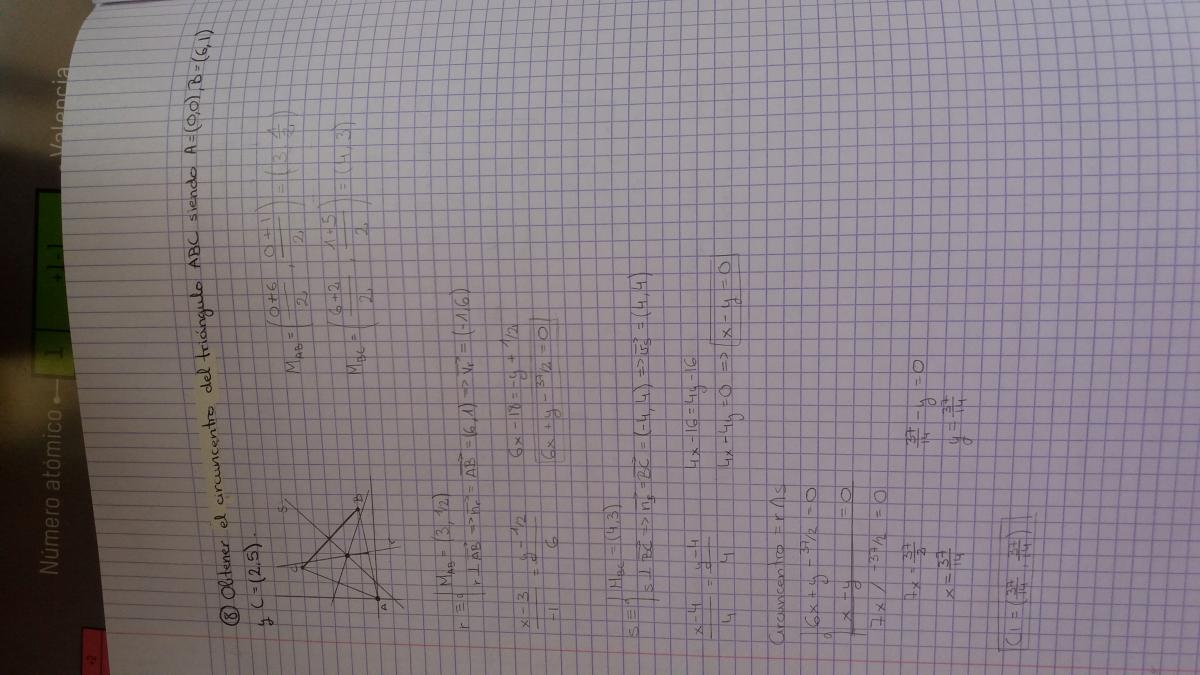 Número atómico
1
+1 -1
Valencia
+2
⑧ Obtener el circuncentro del triángulo ABC siendo A=(0,0), B=(6,1)
y C=(2,5).
M_AB = (0+6/2, 0+1/2) = (3, 1/2)
M_BC = (6+2/2, 1+5/2) = (4,3)
C
S
B
A
r
r ≡ M_AB = (3, 1/2)
r ⊥ AB => n_r = AB = (6,1) => v_r = (-1,6)
x-3/-1 = y-1/2/6
6x-18=-y+1/2
6x+y-37/2=0
s ≡ M_BC = (4,3)
s ⊥ BC => n_s = BC = (-4,4) => v_s = (4,4)
x-4/4 = y-4/4
4x-16=4y-16
4x-4y=0 => x-y=0
Circuncentro = r∩s
6x+y-37/2=0
x-y =0
7x / -37/2=0
7x = 37/2
x = 37/14
37/14 - y = 0
y = 37/14
C1 = (37/14, 37/14)